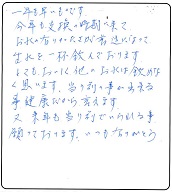 一年も早いものです。
今年も交換の時期が来て
お水の有りがたさが
生水を一杯飲んでおります
とてもおいしく他のお水は飲めな
く思います。当り前の事が出来る
事健康だから言えます。
又 来年も当り前でいられる事
願っております。いつもありがとう